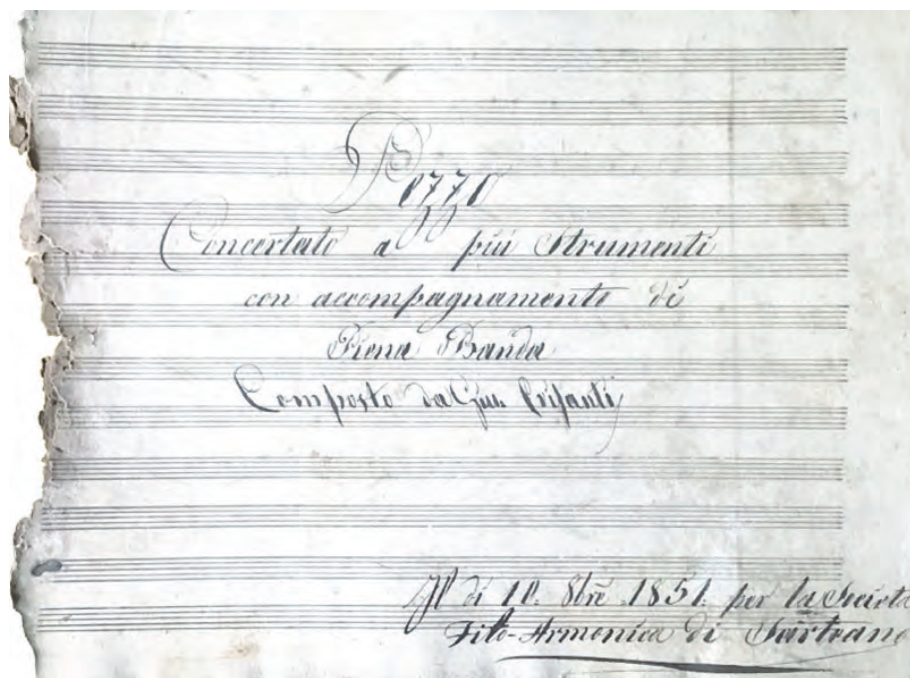 Pezzo
Concertato a più Strumenti
con accompagnamento di
Piena Banda
Composto da
Il dì 10. 8bre 1851. per la Società
Filo-Armonica di Sarteano